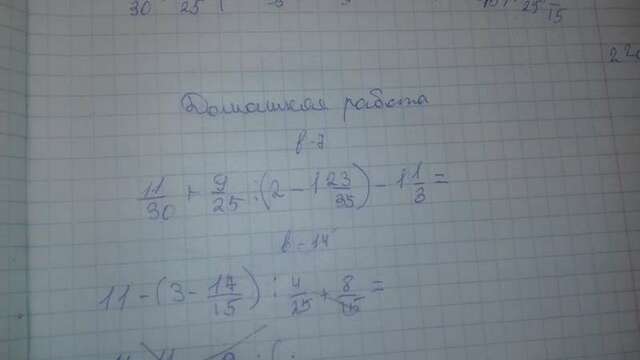 30 25
Домашняя работа
в-7
11/30 + 9/25 : (2 - 1 23/35) - 1 1/3 =
в-14
11 - (3 - 17/15) : 4/25 + 8/15 =